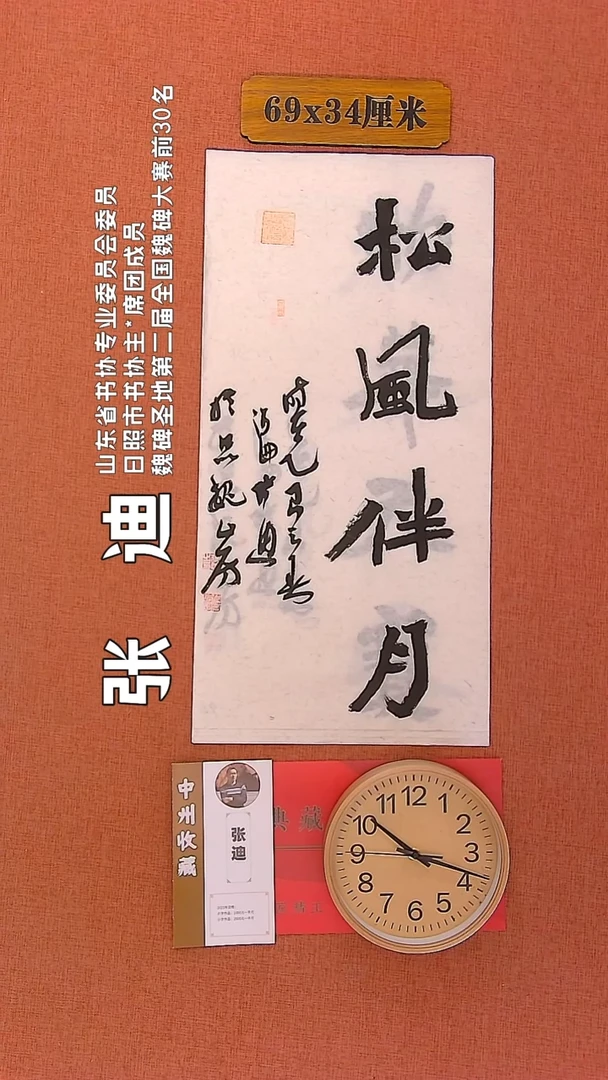 69x34厘米
山东省书协专业委员会委员
日照市书协主*席团成员
魏碑圣地第二届全国魏碑大赛前30名
张 迪
松風伴月
时在乙巳之春
典藏
张迪
12
1
2
3
4
5
6
7
8
9
10
11